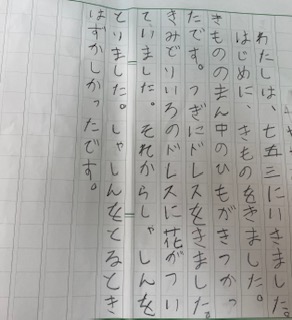 わたしは、七五三にいきました。
はじめに、きものをきました。
きもののまん中のひもがきつかっ
たです。つぎにドレスをきました。
きみどりいろのドレスに花がつい
ていました。それからしゃしんを
とりました。しゃしんをとるとき
はずかしかったです。